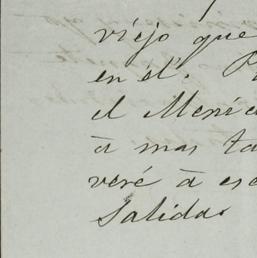 viejo que
en él.
el
à mas ta
veré à es
Salidas